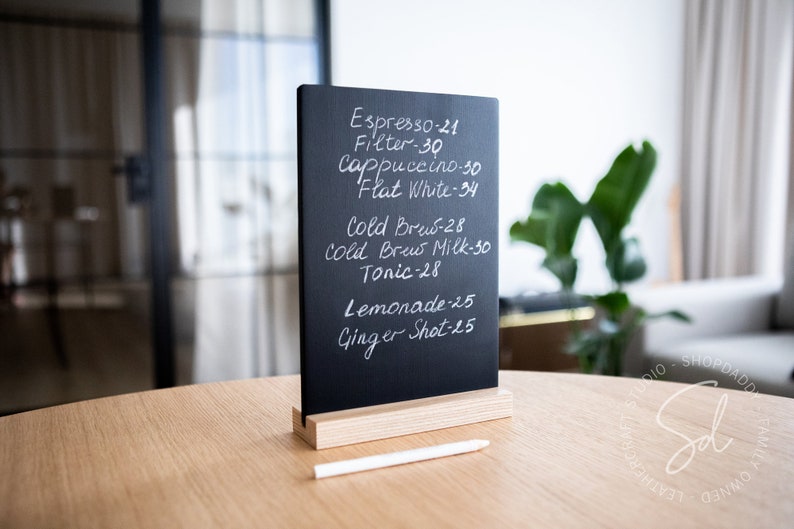 Espresso-21
Filter-30
Cappuccino-30
Flat White-34
Cold Brew-28
Cold Brew Milk-30
Tonic-28
Lemonade-25
Ginger Shot-25
LEATHERCRAFT STUDIO - SHOPDADDY - FAMILY OWNED -
Sd